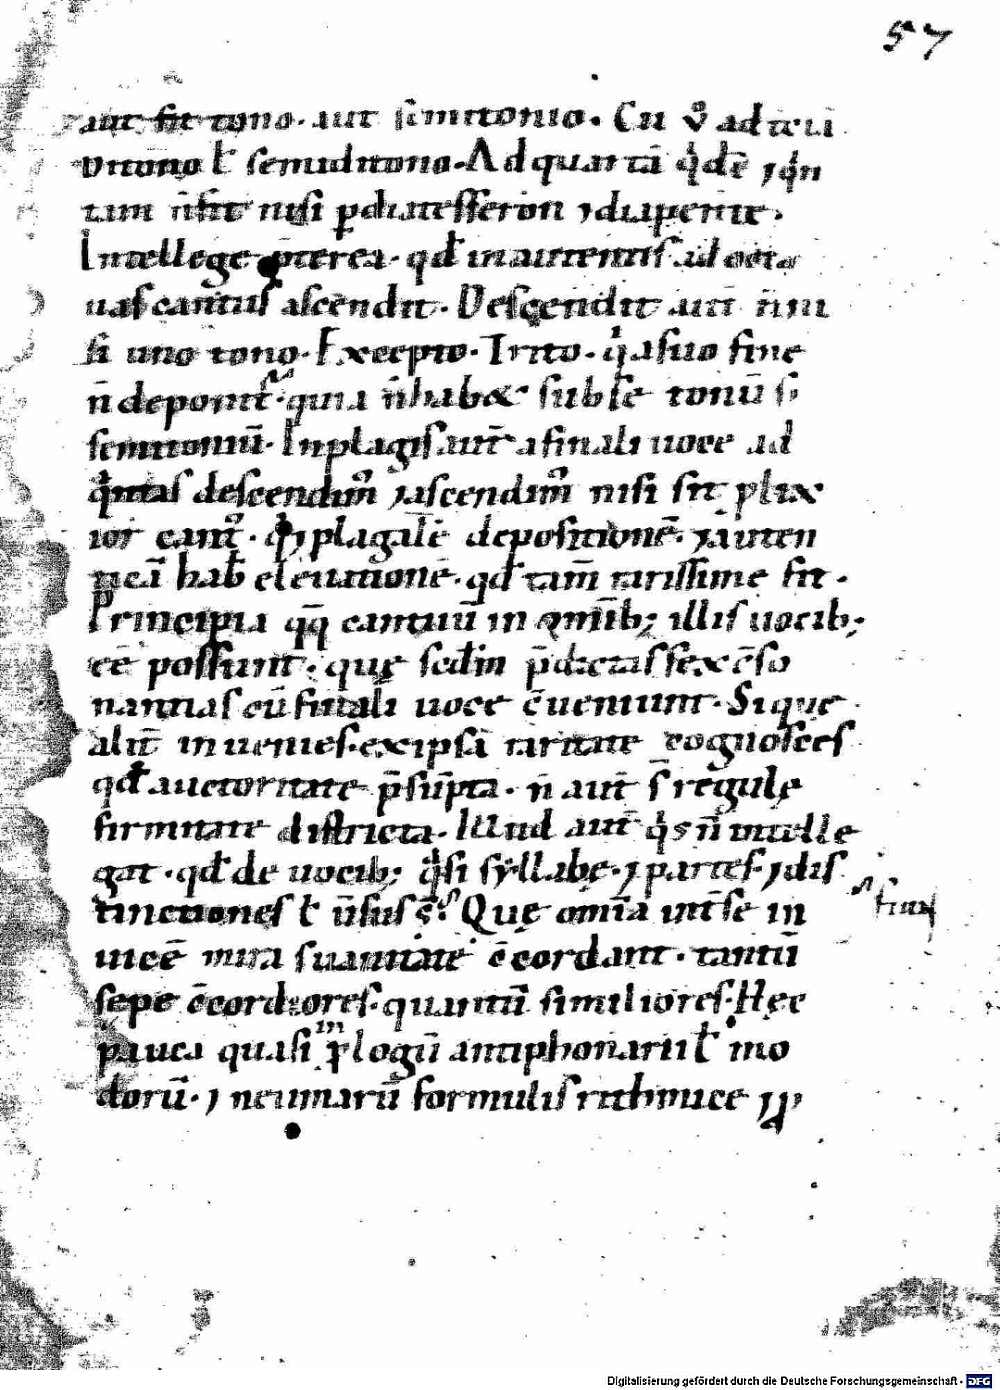 57
aut fit tono. aut semitonio. Cū v̊ ad terti
ditono ł semiditono. Ad quartā q̇dē ⁊ q̇n
tam n̄ fit nisi p̱ diatesseron ⁊ diapente.
Intellege p̄terea. qđ in autentis. ad octa
uas cantus ascendit. Descendit aut̄ n̄ ni
si uno tono. Excepto. Trito. q̇ a suo fine
n̄ deponit᷑. quia n̄ hab& sub se tonū s;
semitoniū. In plagis aut̄ a finali uoce ad
q̇ntas descendim᷒ ⁊ ascendim᷒ nisi sit plix
ior cant᷒. q̇ ⁊ plagalē depositionē. ⁊ auten
ticā hab̄ eleuationē. qđ tam̄ rarissime fit.
Principia q̄q̄ cantuū in omīb; illis uocib;
ēē possunt. quę scđm p̄dictas sex c̄so
nantias cū finali uoce c̄ueniunt. Si que
alit̄ inuenies. ex ipsā raritate cognosces
qđ auctoritate p̄sūpta. n̄ aut̄ s̄ regulę
firmitate districta. Illud aut̄ q̇s n̄ intelle
gat. qđ de uocib; q̇si syllabę. ⁊ partes. ⁊ dis
tinctiones ł ūsus s̄. Quę om̄ia int̄ se in
uicē mira suauitate c̄cordant. tantū
sepe c̄cordiores. quantū similiores. Hęc
pauca quasi in p̱logū antiphonarii ł mo
dorū. ⁊ neumarū formulis rithmice ⁊ p̱
Digitalisierung gefördert durch die Deutsche Forschungsgemeinschaft - DFG